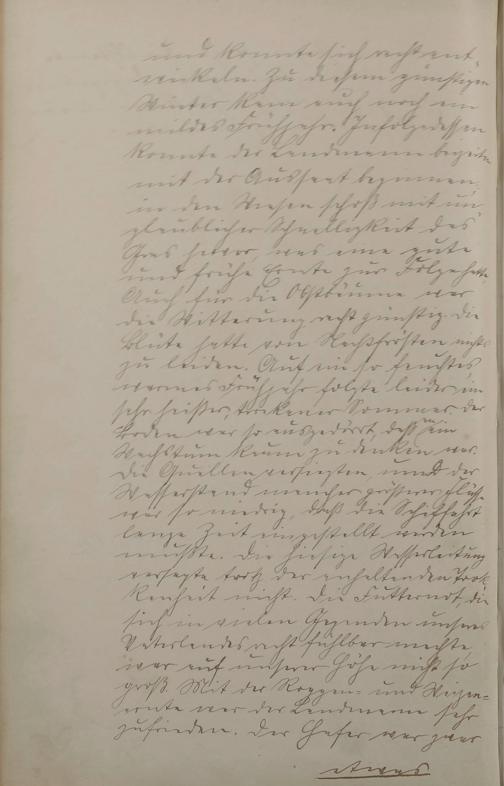 und konnte sich recht ent-
wickeln. Zu diesem günstigen
Winter kam auch noch ein
mildes Frühjahr. Infolgedessen
konnte der Landmann bezeiten
mit der Aussaat beginnen;
in den Wiesen schoß mit un-
glaublicher Schnelligkeit das
Gras hervor, was eine gute
und frühe Ernte zur Folge hatte.
Auch für die Obstbäume war
die Witterung recht günstig. Die
Blüte hatte von Nachtfrösten nichts
zu leiden. Auf ein so feuchtes
warmes Frühjahr folgte leider ein
sehr heißer, trockener Sommer. Der
Boden war so ausgedörrt, dass an ein
Wachstum kaum zu denken war.
Die Quellen versiegten, und der
Wasserstand mancher größerer Flüsse
war so niedrig, daß die Schiffahrt
lange Zeit eingestellt werden
mußte. Die hiesige Wasserleitung
versagte trotz der anhaltenden Trok-
kenheit nicht. Die Futternot, die
sich in vielen Gegenden unseres
Vaterlandes recht fühlbar machte,
war auf unserer Höhe nicht so
groß. Mit der Roggen- und Weizen-
ernte war der Landmann sehr
zufrieden. Der Hafer war zwar
etwas